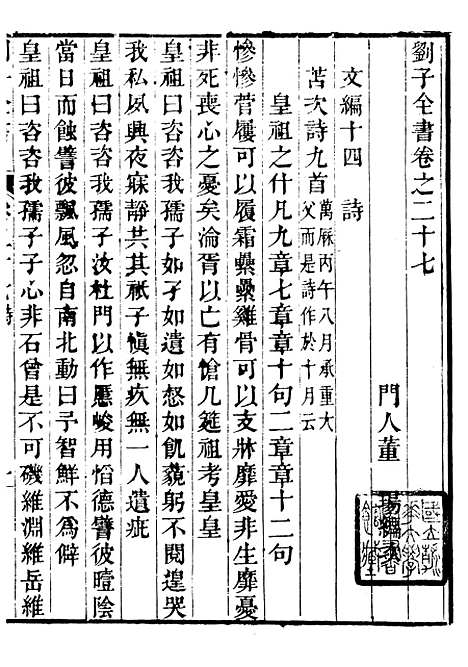 劉子全書卷之二十七
門人董
瑒編次
文編十四　詩
苫次詩九首萬厤丙午八月承重大
父而是詩作於十月云
皇祖之什凡九章七章章十句二章章十二句
慘慘菅屨可以履霜纍纍雞骨可以支牀靡愛非生靡憂
非死喪心之憂矣淪胥以亡有愴几筵祖考皇皇
皇祖曰咨咨我孺子如孑如遺如惄如飢藐躬不閱遑哭
我私夙興夜寐静共其祇予愼無疚無一人遺疵
皇祖曰咨咨我孺子汝杜門以作應峻用慆德譬彼曀陰
當日而蝕譬彼飄風忽自南北動曰予智鮮不為僻
皇祖曰咨咨我孺子子心非石曾是不可磯維淵維岳維